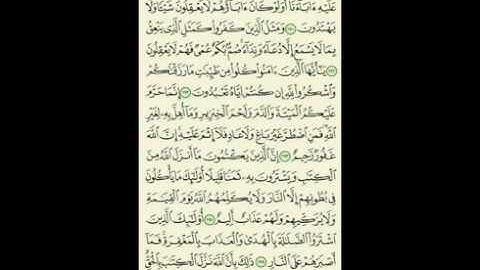 عَلَيْهِ ءَابَآءَنَآ أَوَلَوْ كَانَ ءَابَآؤُهُمْ لَا يَعْقِلُونَ شَيْـًٔا وَلَا
يَهْتَدُونَ ۝١٧٠ وَمَثَلُ ٱلَّذِينَ كَفَرُوا۟ كَمَثَلِ ٱلَّذِى يَنْعِقُ
بِمَا لَا يَسْمَعُ إِلَّا دُعَآءً وَنِدَآءً صُمٌّۢ بُكْمٌ عُمْىٌ فَهُمْ لَا يَعْقِلُونَ
۝١٧١ يَٰٓأَيُّهَا ٱلَّذِينَ ءَامَنُوا۟ كُلُوا۟ مِن طَيِّبَٰتِ مَا رَزَقْنَٰكُمْ
وَٱشْكُرُوا۟ لِلَّهِ إِن كُنتُمْ إِيَّاهُ تَعْبُدُونَ ۝١٧٢ إِنَّمَا حَرَّمَ
عَلَيْكُمُ ٱلْمَيْتَةَ وَٱلدَّمَ وَلَحْمَ ٱلْخِنزِيرِ وَمَآ أُهِلَّ بِهِۦ لِغَيْرِ
ٱللَّهِ فَمَنِ ٱضْطُرَّ غَيْرَ بَاغٍ وَلَا عَادٍ فَلَآ إِثْمَ عَلَيْهِ إِنَّ ٱللَّهَ
غَفُورٌ رَّحِيمٌ ۝١٧٣ إِنَّ ٱلَّذِينَ يَكْتُمُونَ مَآ أَنزَلَ ٱللَّهُ مِنَ
ٱلْكِتَٰبِ وَيَشْتَرُونَ بِهِۦ ثَمَنًا قَلِيلًا أُو۟لَٰٓئِكَ مَا يَأْكُلُونَ
فِى بُطُونِهِمْ إِلَّا ٱلنَّارَ وَلَا يُكَلِّمُهُمُ ٱللَّهُ يَوْمَ ٱلْقِيَٰمَةِ
وَلَا يُزَكِّيهِمْ وَلَهُمْ عَذَابٌ أَلِيمٌ ۝١٧٤ أُو۟لَٰٓئِكَ ٱلَّذِينَ
ٱشْتَرَوُا۟ ٱلضَّلَٰلَةَ بِٱلْهُدَىٰ وَٱلْعَذَابَ بِٱلْمَغْفِرَةِ فَمَآ
أَصْبَرَهُمْ عَلَى ٱلنَّارِ ۝١٧٥ ذَٰلِكَ بِأَنَّ ٱللَّهَ نَزَّلَ ٱلْكِتَٰبَ بِٱلْحَقِّ